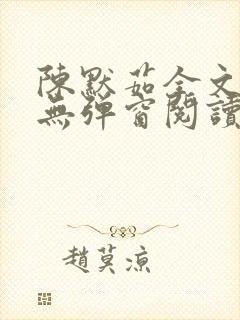 陳默茹全文
無彈窗閱讀
趙莫涼